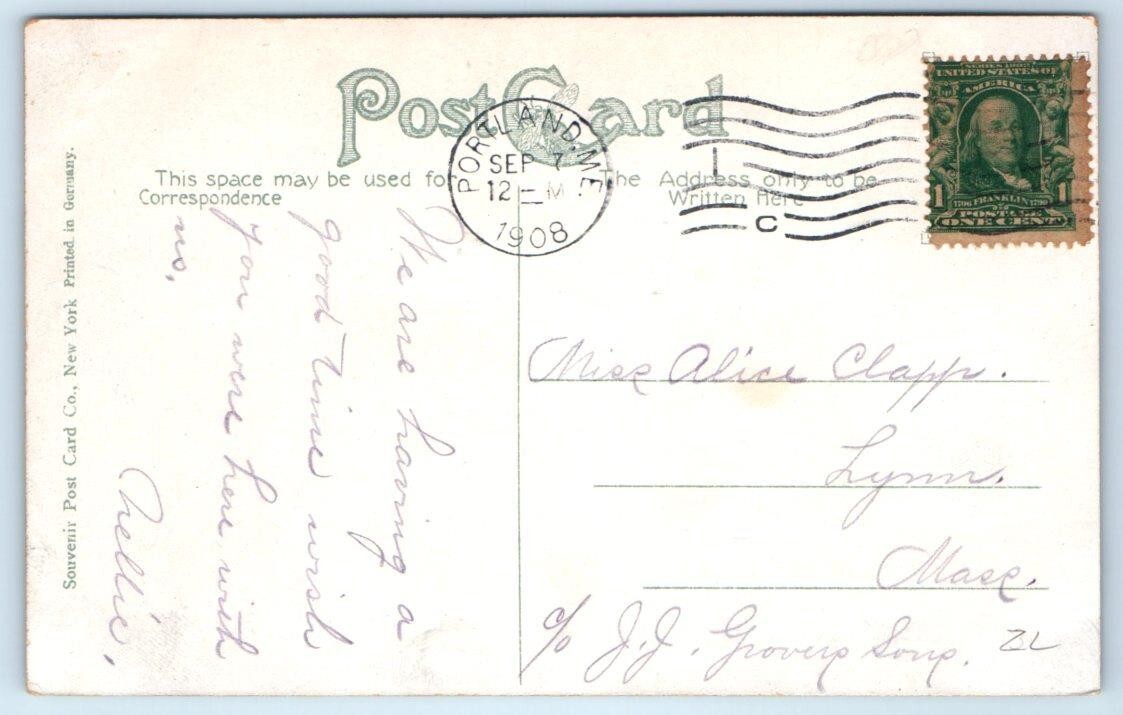 Post Card
This space may be used for
Correspondence
The Address only to be
Written Here
PORTLAND, ME.
SEP 7
12 M
1908
C
SERIES 1902
UNITED STATES OF
AMERICA
1 1
1706 FRANKLIN 1790
POSTAGE
ONE CENT
Souvenir Post Card Co., New York Printed in Germany.
We are having a
good time wish
you were here with
us.
Nellie.
Miss Alice Clapp.
Lynn.
Mass.
c/o J.J. Grovers Sons.
ZL